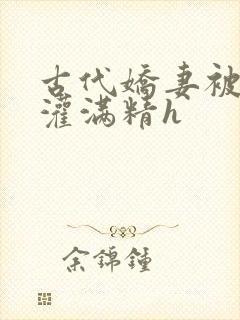 古代嬌妻被
灌滿精h
余錦鐘